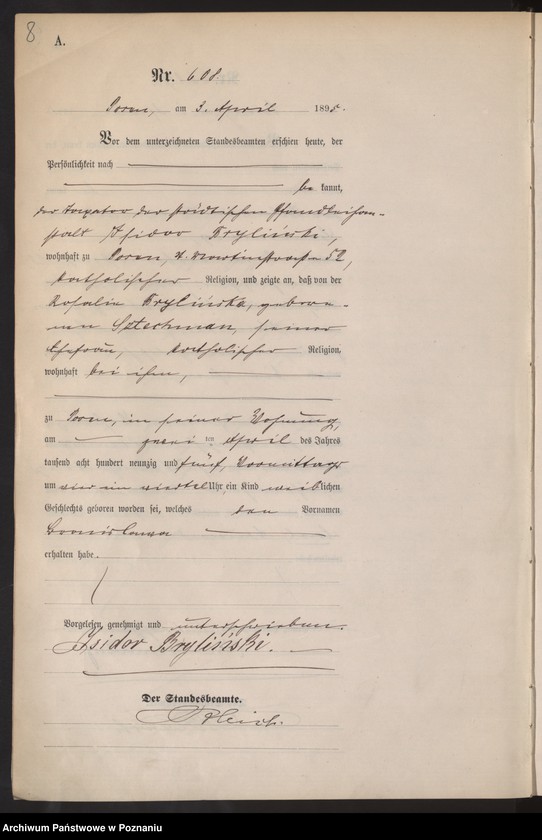 8
A.
Nr. 608.
Posen, am 3. April 1895.
Vor dem unterzeichneten Standesbeamten erschien heute, der
Persönlichkeit nach
be kannt,
der Taxator der städtischen Pfandleihan-
stalt Isidor Bryliński,
wohnhaft zu Posen, St. Martinstrasse 52,
katholischer Religion, und zeigte an, daß von der
Rosalie Brylińska, gebore-
nen Sztechman, seiner
Ehefrau, katholischer Religion,
wohnhaft bei ihm,
zu Posen, in seiner Wohnung,
am zwei ten April des Jahres
tausend acht hundert neunzig und fünf, Vormittags
um vier ein viertel Uhr ein Kind weib lichen
Geschlechts geboren worden sei, welches den Vornamen
Bronislawa
erhalten habe.
Vorgelesen, genehmigt und unterschrieben.
Isidor Bryliński.
Der Standesbeamte.
Archiwum Państwowe w Poznaniu